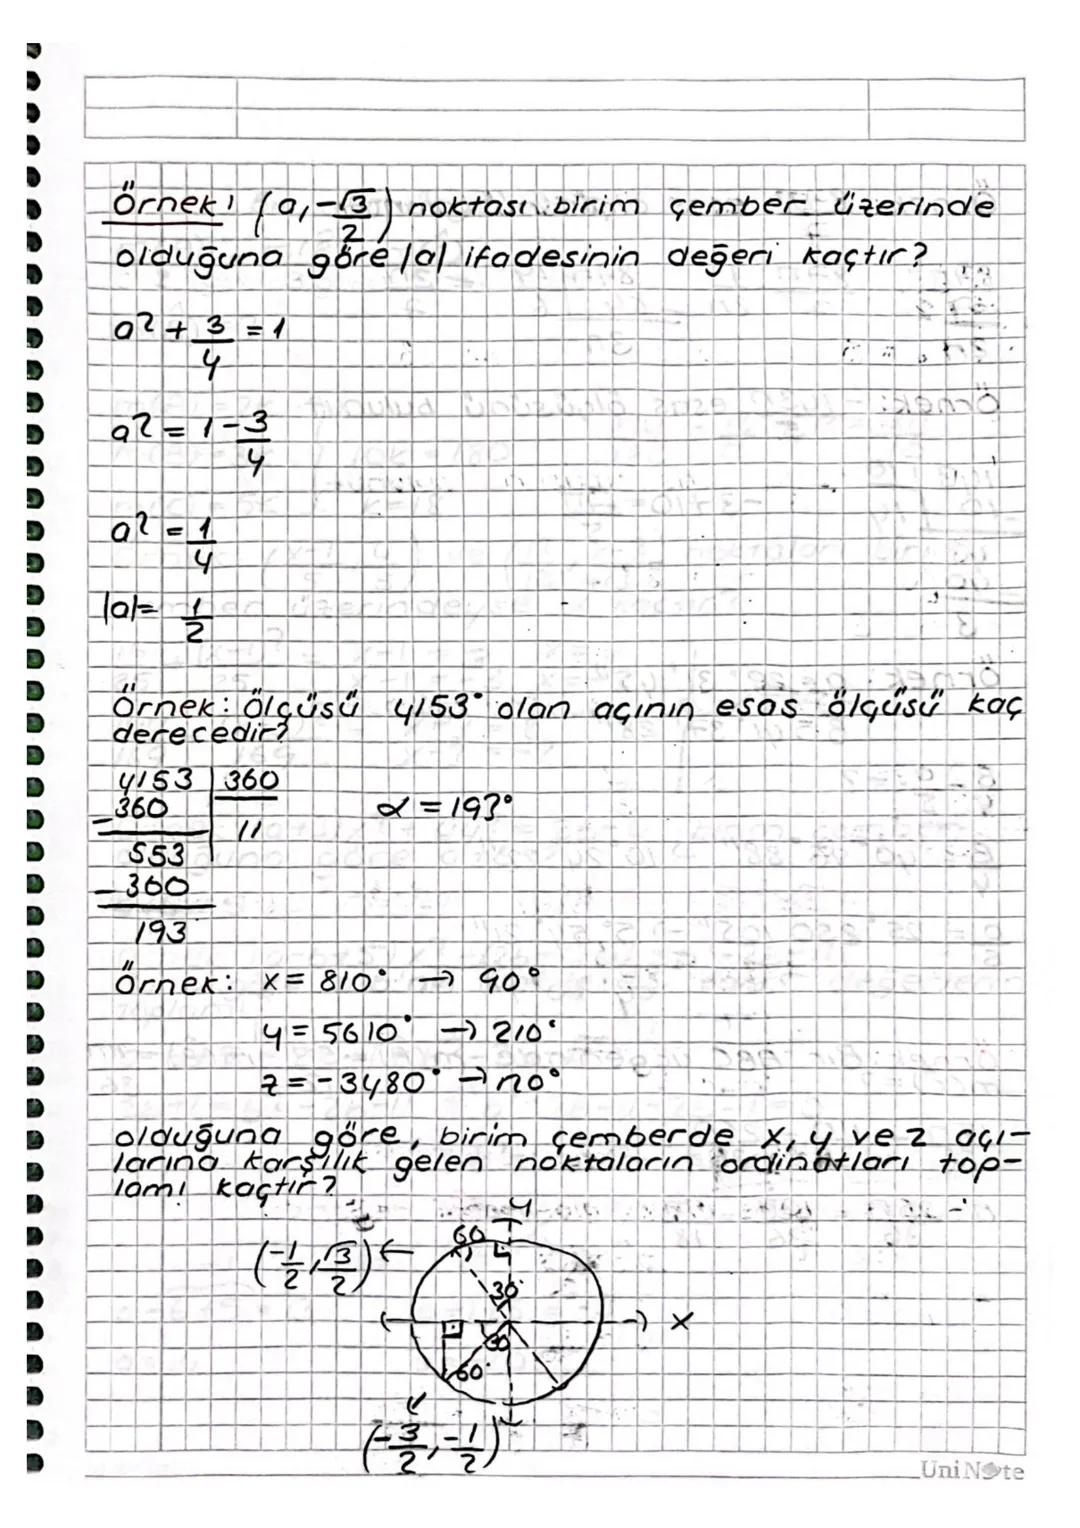 Örnek: (a, -√3/2) noktası birim çember üzerinde
olduğuna göre |a| ifadesinin değeri kaçtır?
a² + 3/4 = 1
a² = 1 - 3/4
a² = 1/4
|a| = 1/2
Örnek: Ölçüsü 4153° olan açının esas ölçüsü kaç
derecedir?
4153 | 360
- 360 | 11
553
- 360
193
α = 193°
Örnek: x = 810° → 90°
y = 5610° → 210°
z = -3480° → 120°
olduğuna göre, birim çemberde x, y ve z açı-
larına karşılık gelen noktaların ordinatları top-
lamı kaçtır?
y
60
(-1/2, √3/2)
30°
x
30
60°
(-3/2, -1/2)
UniNote